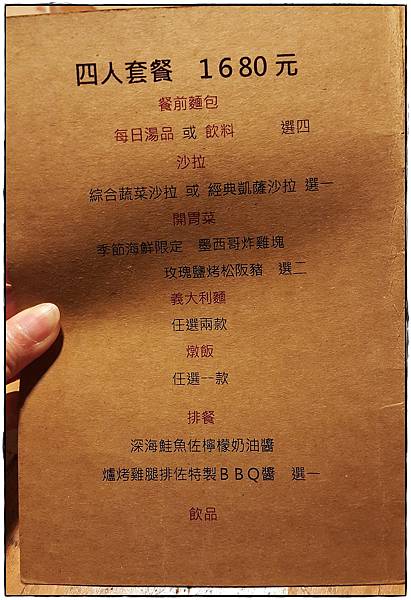 四人套餐 1680元
餐前麵包
每日湯品 或 飲料 選四
沙拉
綜合蔬菜沙拉 或 經典凱薩沙拉 選一
開胃菜
季節海鮮限定 墨西哥炸雞塊
玫瑰鹽烤松阪豬 選二
義大利麵
任選兩款
燉飯
任選一款
排餐
深海鮭魚佐檸檬奶油醬
爐烤雞腿排佐特製BBQ醬 選一
飲品